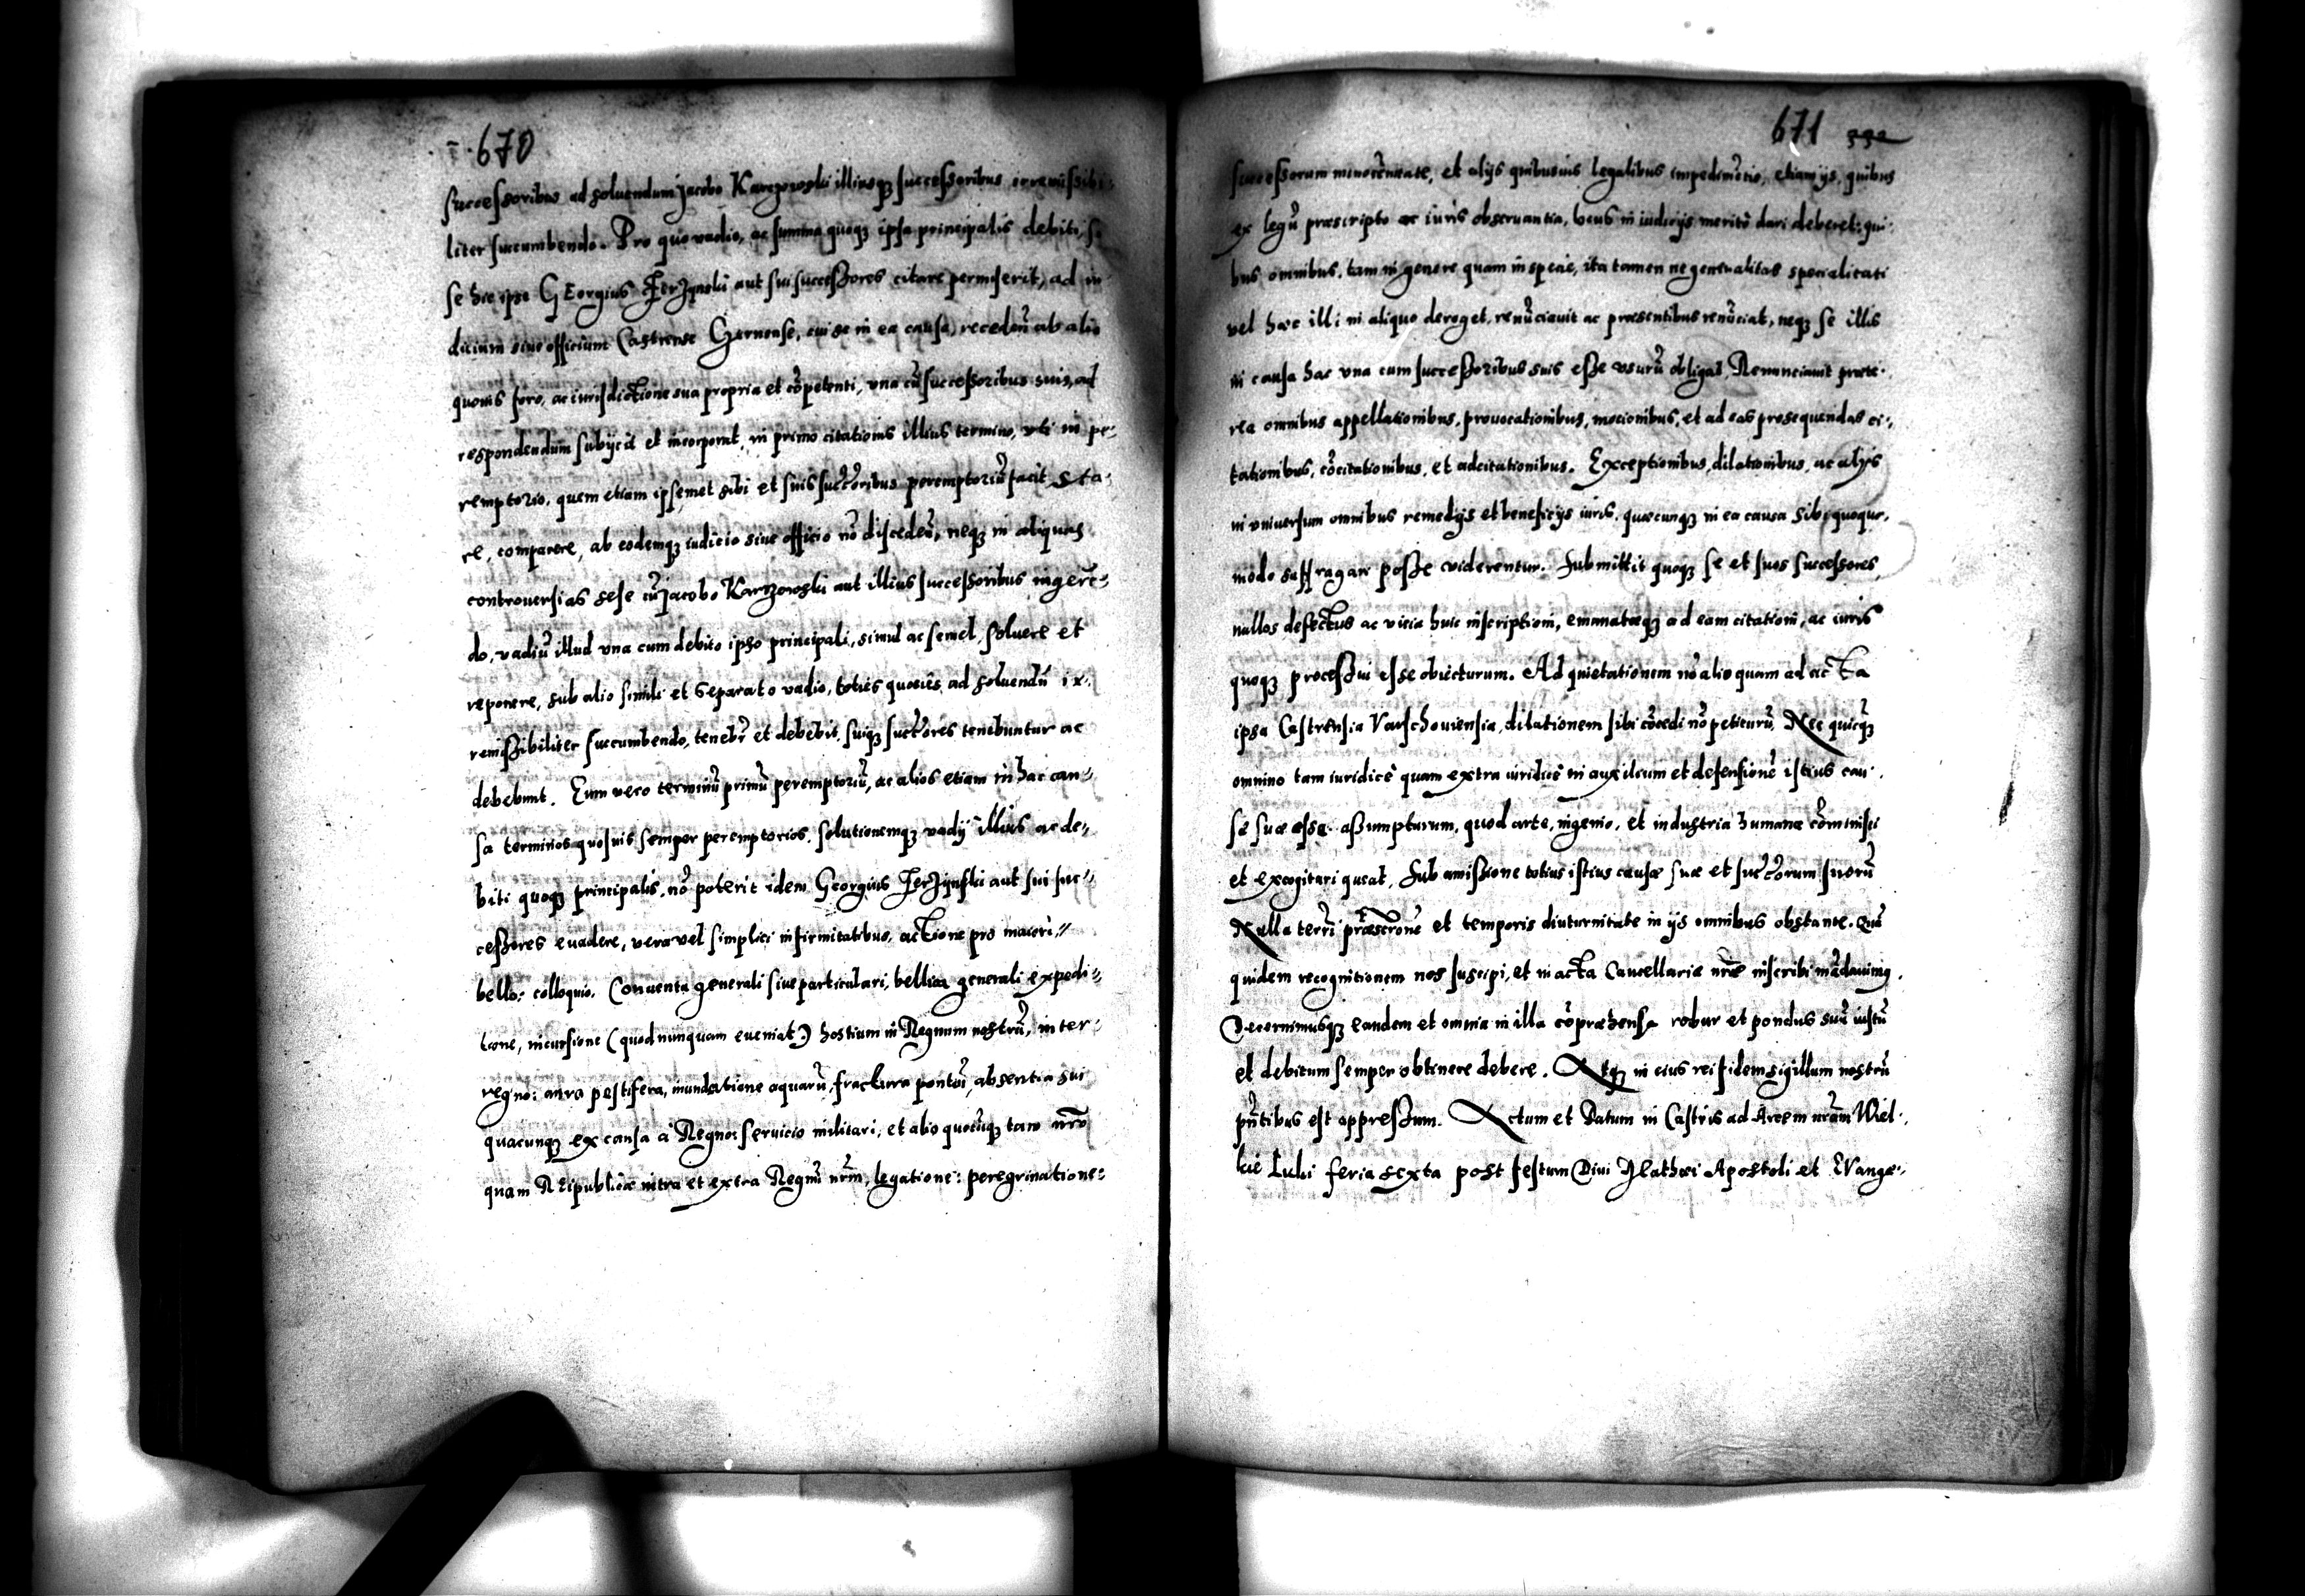 670
successoribus ad soluendum Jacobo Karczowski illiusq3 successoribus irremissibi-
liter succumbendo. Pro quo vadio, ac summa quoq3 ipsa principalis debiti, si
se hic ipse GEorgius Jerzynski aut sui successores citare permiserit, ad iu-
dicium siue officium Castrense Gernense, cui se in ea causa, recedeñ ab alio
quouis foro, ac iurisdictione sua propria et cõpetenti, vna cũ successoribus suis, ad
respondendum subijcit et incorporat, in primo citationis illius termino, vti in pe-
remptorio, quem etiam ipsemet sibi et suis succ̃oribus peremptoriũ facit Sta-
re, comparere, ab eodemq3 iudicio siue officio nõ discedeñ, neq3 in aliquas
controuersias sese cũ Jacobo Karczowski aut illius successoribus ingerẽ-
do, vadiũ illud vna cum debito ipso principali, simul ac semel, soluere et
reponere, sub alio simili et separato vadio, toties quoties, ad soluendũ ir-
remissibiliter succumbendo, tenebr̃ et debebit, suiq3 succ̃ores tenebuntur ac
debebunt. Eum vero terminũ primũ peremptoriũ, ac alios etiam in hac cau-
sa terminos quosuis semper peremptorios, solutionemq3 vadij illius ac de-
biti quoq3 principalis, nõ poterit idem Georgius Jerzynski aut sui suc-
cessores euadere, vera vel simplici infirmitatibus, actione pro maiori,
bello: colloquio. Conuentu generali siue particulari, bellica generali expedi-
tione, incursione (quod nunquam eueniat) hostium in Regnum nostrũ, inter-
regno: aura pestifera, inundatione aquarũ, fractura pontiũ, absentia sui
quacunq3 ex causa à Regno: seruicio militari, et alio quocũq3 tam nr̃o
quam REipublicæ intra et extra Regnũ nr̃m, legatione: peregrinatione:
671 332
successorum minorẽnitate, et alijs quibusuis legalibus impedimẽtis, etiam ijs, quibus
ex legũ præscripto ac iuris obseruantia, locus in iudicijs meritò dari deberet: qui-
bus omnibus, tam in genere quam in specie, ita tamen ne generalitas specialitati
vel hæc illi in aliquo deroget, renũciauit ac præsentibus renũciat, neq3 se illis
in causa hac vna cum successoribus suis esse vsurũ obligat, Renunciauit præte-
rea omnibus appellationibus, prouocationibus, mocionibus, et ad eas prosequendas ci-
tationibus, cõcitationibus, et adcitationibus. Exceptionibus, dilationibus, ac alijs
in vniuersum omnibus remedijs et beneficijs iuris, quæcunq3 in ea causa sibi quoquo
modo suffragari posse viderentur. Submittit quoq3 se et suos successores,
nullos defectus ac vicia huic inscriptioni, emanatæq3 ad eam citationi, ac iuris
quoq3 processui esse obiecturum. Ad quietationem nõ alio quam ad acta
ipsa Castrensia Varschouiensia, dilationem sibi cõcedi nõ petiturũ, Nec quicq̃
omnino tam iuridicè quam extra iuridicè in auxilium et defensionẽ istius cau-
sæ suæ esse assumpturum, quod arte, ingenio, et industria humana cõminisci
et excogitari queat, Sub amissione totius istius causæ suæ et succ̃orum suorũ
Nulla terr̃i præscr̃onẽ et temporis diuturnitate in ijs omnibus obstante. Quã
quidem recognitionem nos suscipi, et in acta Cancellariæ nr̃æ inscribi mãdauimq
Decernimusq3 eandem et omnia in illa cõpræhensa robur et pondus suũ iustũ
et debitum semper obtinere debere. Atq3 in eius rei fidem sigillum nostrũ
pñtibus est oppressum. Actum et Datum in Castris ad Arcem nr̃am Wiel-
kie Luki feria sexta post festum Diui Mathæi Apostoli et EVange-